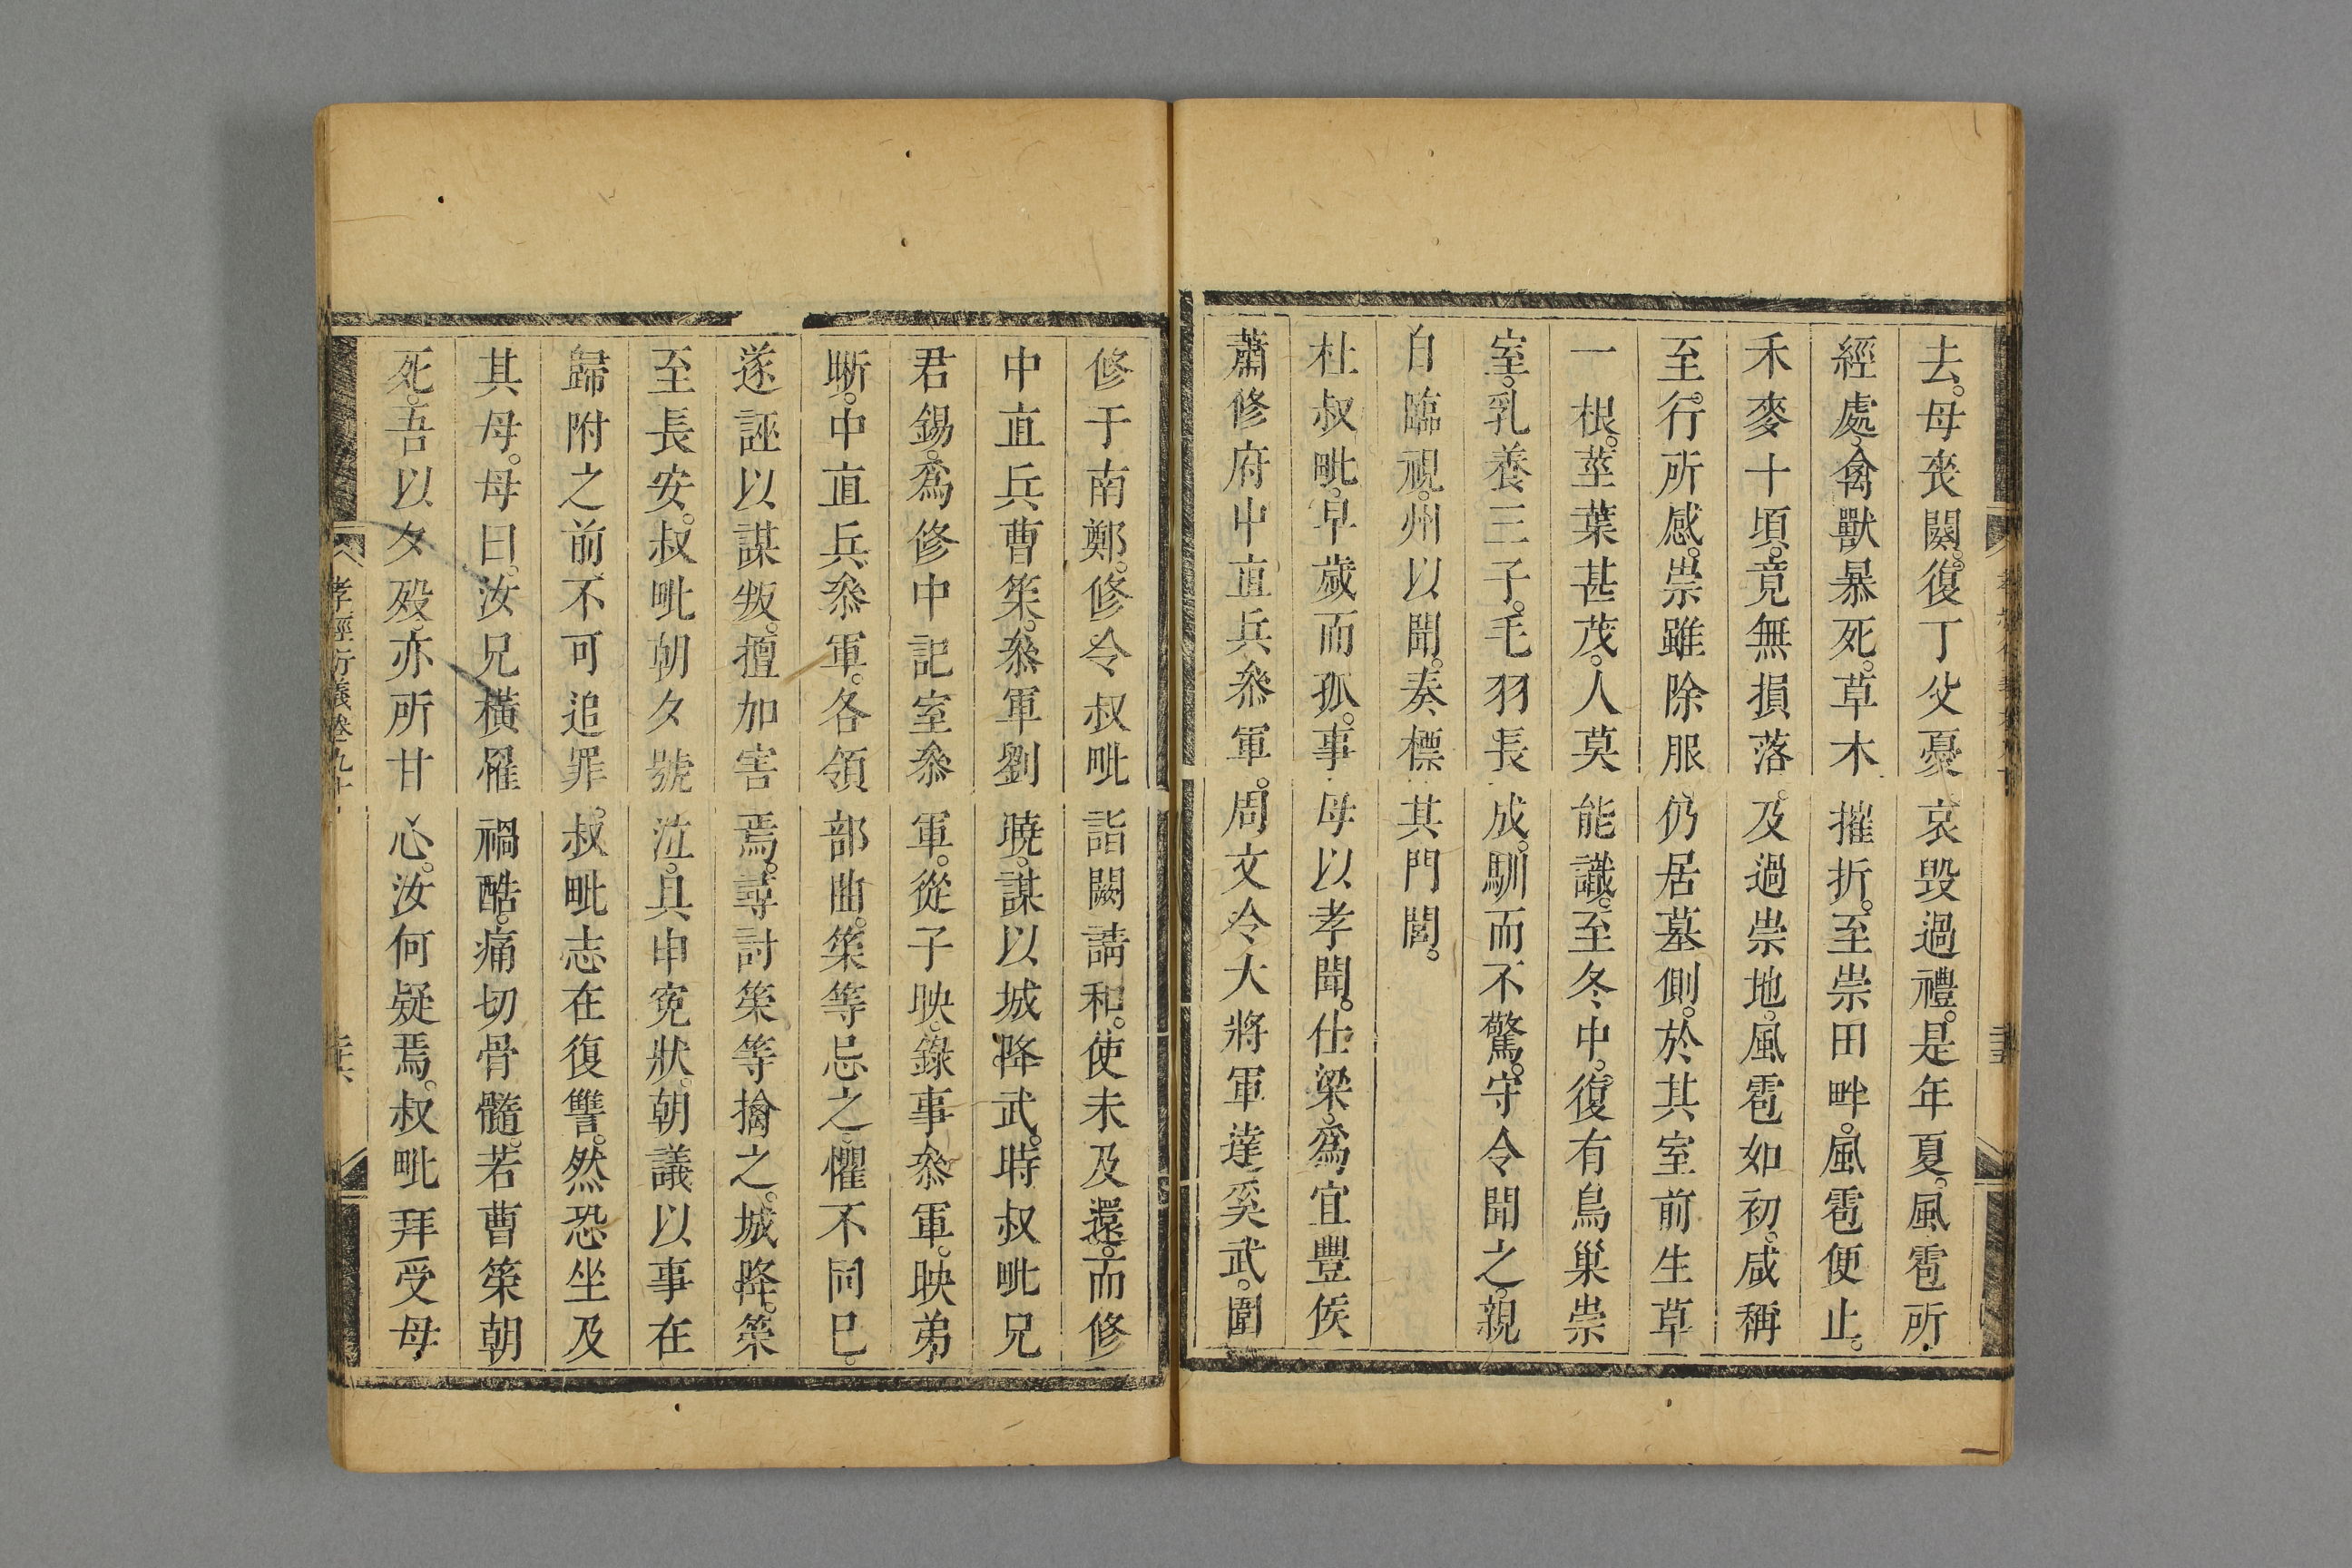 去。母喪闋。復丁父憂哀毀過禮。是年夏。風雹所
經處。禽獸暴死。草木摧折。至崇田畔。風雹便止。
禾麥十頃。竟無損落。及過崇地。風雹如初。咸稱
至。行所感。崇雖除服仍居墓側。於其室前生草
一根。莖葉甚茂。人莫能識。至冬中。復有鳥巢崇
室。乳養三子。毛羽長成。馴而不驚。守令聞之。親
自臨視。州以聞。奏標其門閭。
杜叔毗。早歲而孤。事母以孝聞。仕梁。爲宜豐侯
蕭修府中直兵叅軍。周文令大將軍達奚武。圍
修于南鄭。修令叔毗詣闕請和。使未及還。而修
中直兵曹策。叅軍劉曉。謀以城降武。時叔毗兄
君錫。爲修中記室叅軍。從子映。錄事叅軍。映弟
晣。中直兵叅軍。各領部曲。策等忌之。懼不同己。
遂誣以謀叛。擅加害焉。尋討策等擒之。城降。策
至長安。叔毗朝夕號泣。具申寃狀。朝議以事在
歸附之前。不可追罪。叔毗志在復讐。然恐坐及
其母。母曰。汝兄橫罹禍酷。痛切骨髓。若曹策朝
死。吾以夕歿。亦所甘心。汝何疑焉。叔毗拜受母
孝經衍義卷九十